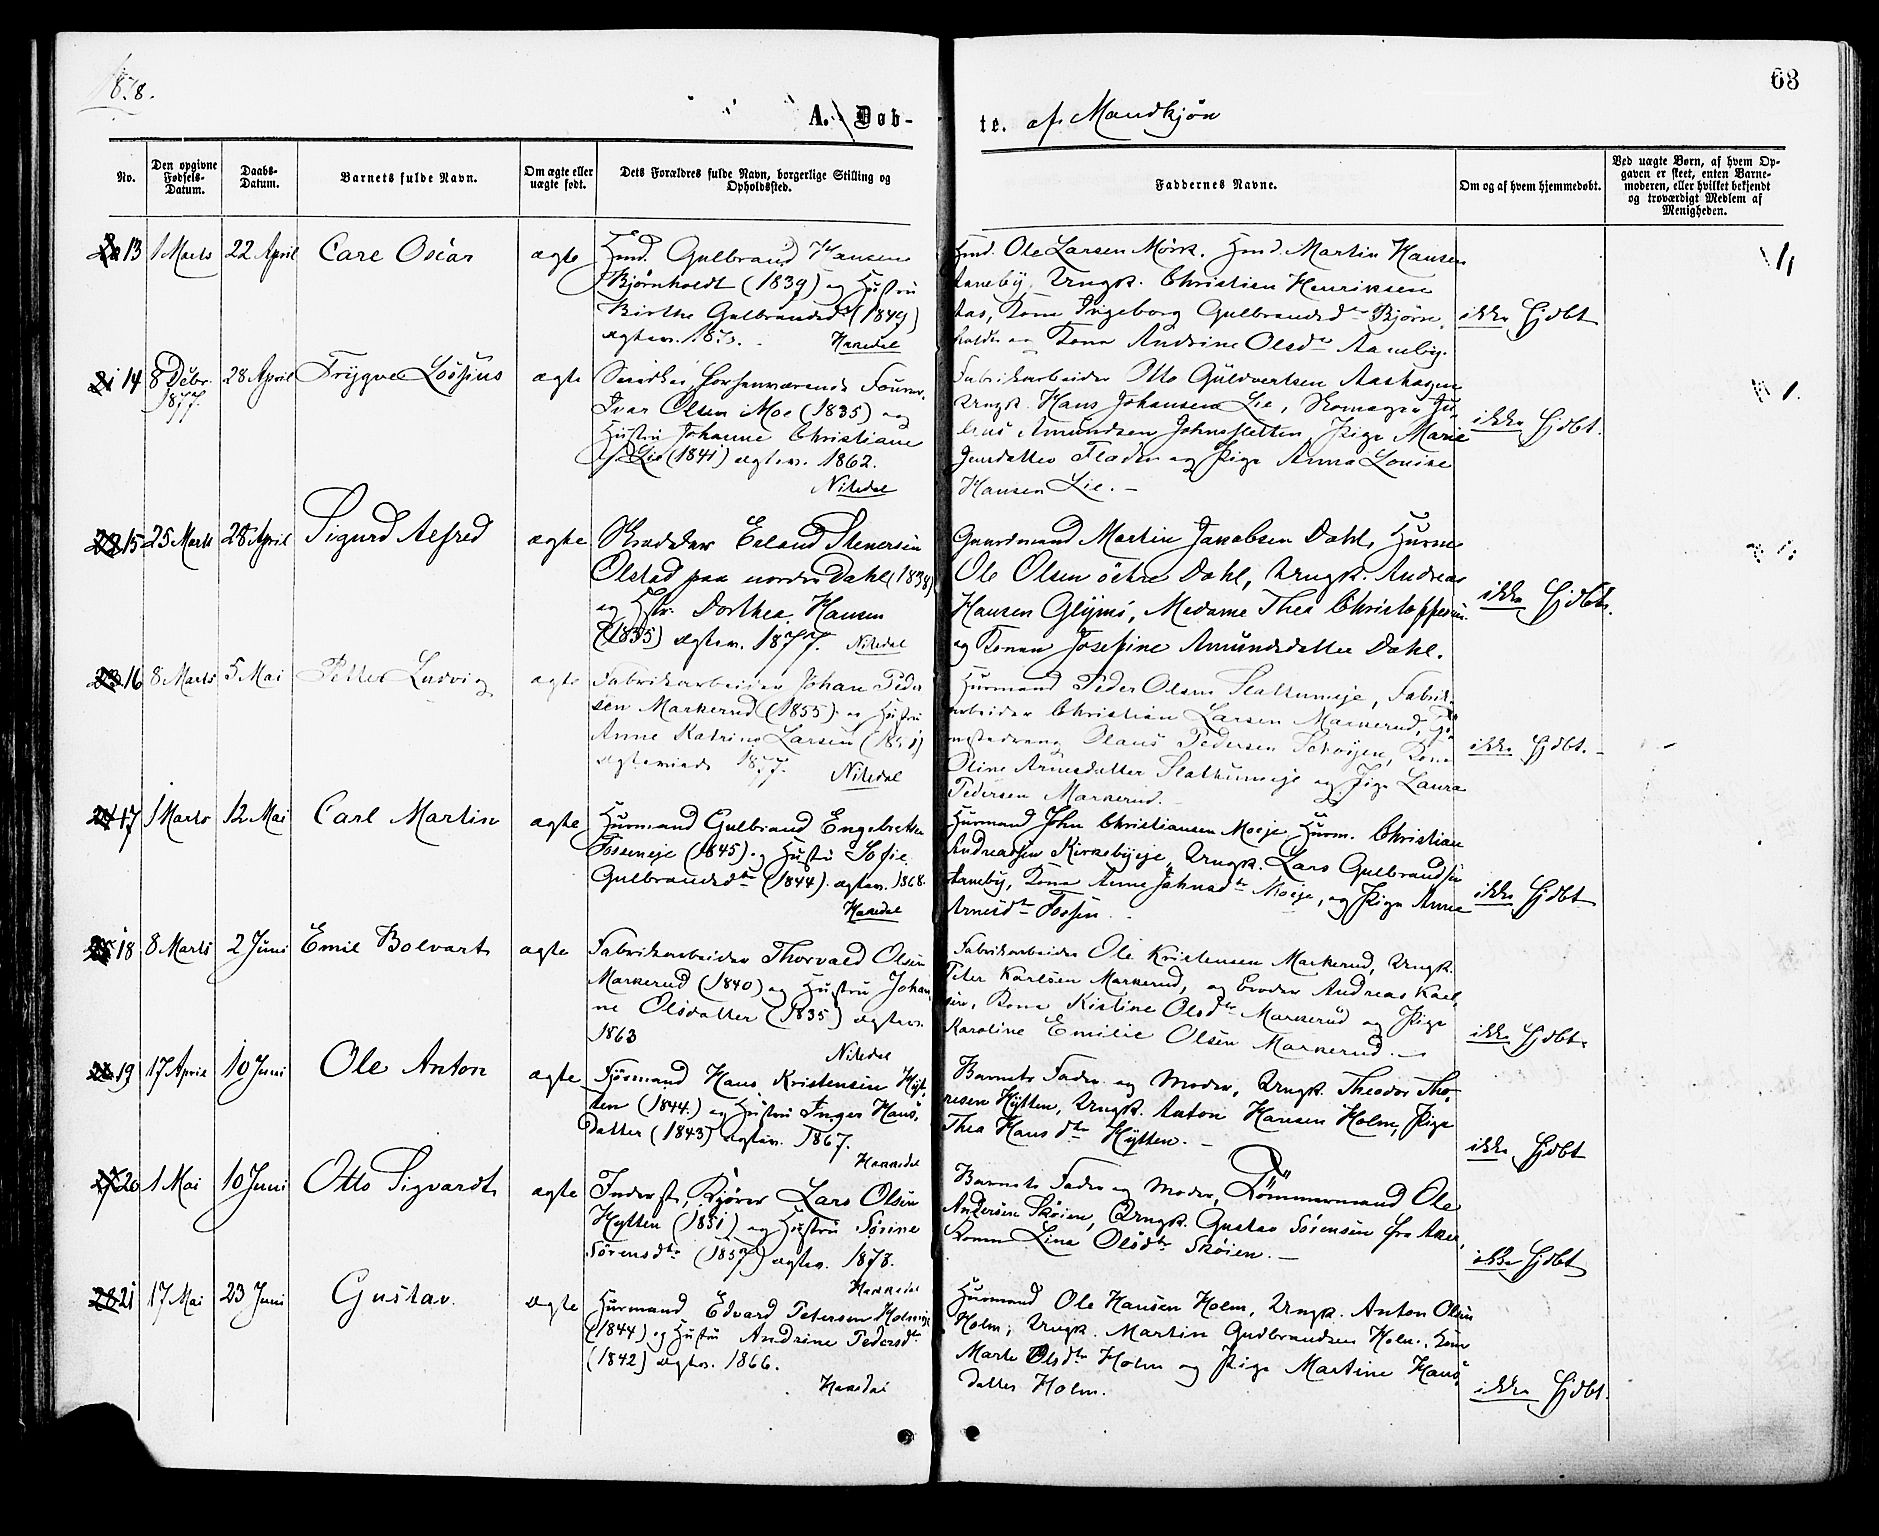 1878.
63
A. Døb-
te. af Mandkjøn
No.
Den opgivne Fødsels-Datum.
Daabs-Datum.
Barnets fulde Navn.
Om ægte eller uægte født.
Dets Forældres fulde Navn, borgerlige Stilling og Opholdssted.
Faddernes Navne.
Om og af hvem hjemmedøbt.
Ved uægte Børn, af hvem Opgaven er skeet, enten Barnemoderen, eller hvilket bekjendt og troværdigt Medlem af Menigheden.
13 1 Marts 22 April Carl Oscar ægte
Hmd. Gulbrand Hansen
Bjørnholdt (1839) og Hustru
Birthe Gulbrandsd. (1849)
ægtev. 1873.
Hakedal
Hmd. Ole Larsen Mörk. Hmd. Martin Hansen
Aaneby, Ungk. Christian Henriksen
Aas, Kone Ingeborg Gulbrandsdtr Bjørn-
holdt og Kone Andrine Olsdtr Aaneby.
ikke hjdbt
14 8 Debr. 1877. 28 April Trygve ægte
Ivar Olsen Moe (1835) og
Hustru Johanne Christiane
Lie (1841) ægtev. 1862.
Nitedal
Fabrikarbeider Otto Guldvertsen Aashagen
Ungk. Hans Johansen Lie, Skomager Ju-
Amundsen Johnsletten, Pige Marie
Jensdatter og Pige Anna Louise
Hansen Lie. —
ikke hjdbt.
15 25 Marts 28 April Sigurd Alfred ægte
Skrædder Erland Stenersen
Olstad paa nordre Dahl (1838)
og Hstr. Dorthea Hansen
(1835) ægtev. 1877. Nitedal
Gaardmand Martin Jacobsen Dahl, Hurm.
Ole Olsen östre Dahl, Ungk. Andreas
Hansen, Madame Thea Christoffersen
og Konen Josefine Amundsdatter Dahl.
ikke hjdbt.
16 8 Marts 5 Mai Petter Ludvig ægte
Fabrikarbeider Johan Peder-
sen Markerud (1855) og Hustru
Anne Katrine Larsen (1851)
ægteviede 1877.
Nitedal
Hurmand Peder Olsen Slattumeje, Fabrik-
arbeider Christian Larsen Markerud,
Olaus Pedersen, Kone
Oline Arnesdatter Slattumeje og Pige Laura
Pedersen Markerud.
ikke hjdbt. —
17 1 Marts 12 Mai Carl Martin ægte
Hurmand Gulbrand Engebretsen
Fosseneje (1845) og Hustru Sofie
Gulbrandsdtr (1844). ægtev. 1868.
Hakedal
Hurmand John Christiansen Moeje, Hurm. Christian
Andreassen Kirkebyeje, Ungk. Lars Gulbrandsen
Aaneby, Kone Anne Johnsdtr Moeje, og Pige Anne
Arnesdtr Fossen.
ikke hjdbt
18 8 Marts 2 Juni Emil Bolvart ægte
Fabrikarbeider Thorvald Olsen
Markerud (1840) og Hustru Johan-
ne Olsdatter (1835) ægtev.
1863
Nitedal
Fabrikarbeider Ole Kristensen Markerud, Ungk.
Peter Karlsen Markerud, og Broder Andreas Karl-
sen, Kone Kistine Olsdtr Markerud og Pige
Karoline Emilie Olsen Markerud. —
ikke hjdbt.
19 17 April 10 Juni Ole Anton ægte
Hans Kristensen Hyt-
ten (1844.) og Hustru Inger Hans-
datter (1843) ægtev. 1867.
Hakedal
Barnets Fader og Moder, Ungk. Theodor Tho-
resen Hytten, Ungk. Anton Hansen Holm, Pige
Thea Hansdtr Hytten. —
ikke hjdbt
20 1 Mai 10 Juni Otto Sigvardt ægte
Inderst, Kjører Lars Olsen
Hytten (1851) og Hustru Sörine
Sörensdtr (1857) ægtev. 1878.
Hakedal
Barnets Fader og Moder, Tömmermand Ole
Andersen Sköien, Ungk. Gustav Sörensen fra Aker,
Konen Lina Olsdtr Sköien. —
ikke hjdbt
21 17 Mai 23 Juni Gustav ægte
Hurmand Edvard Petersen Holmeje
(1844) og Hustru Andrine Pedersdtr
(1842) ægtev. 1866.
Hakedal
Hurmand Ole Hansen Holm, Ungk. Anton Olsen
Holm, Ungk. Martin Gudbrandsen Holm, Kone
Marte Olsdtr Holm og Pige Martine Hans-
datter Holm.
ikke hjdbt.